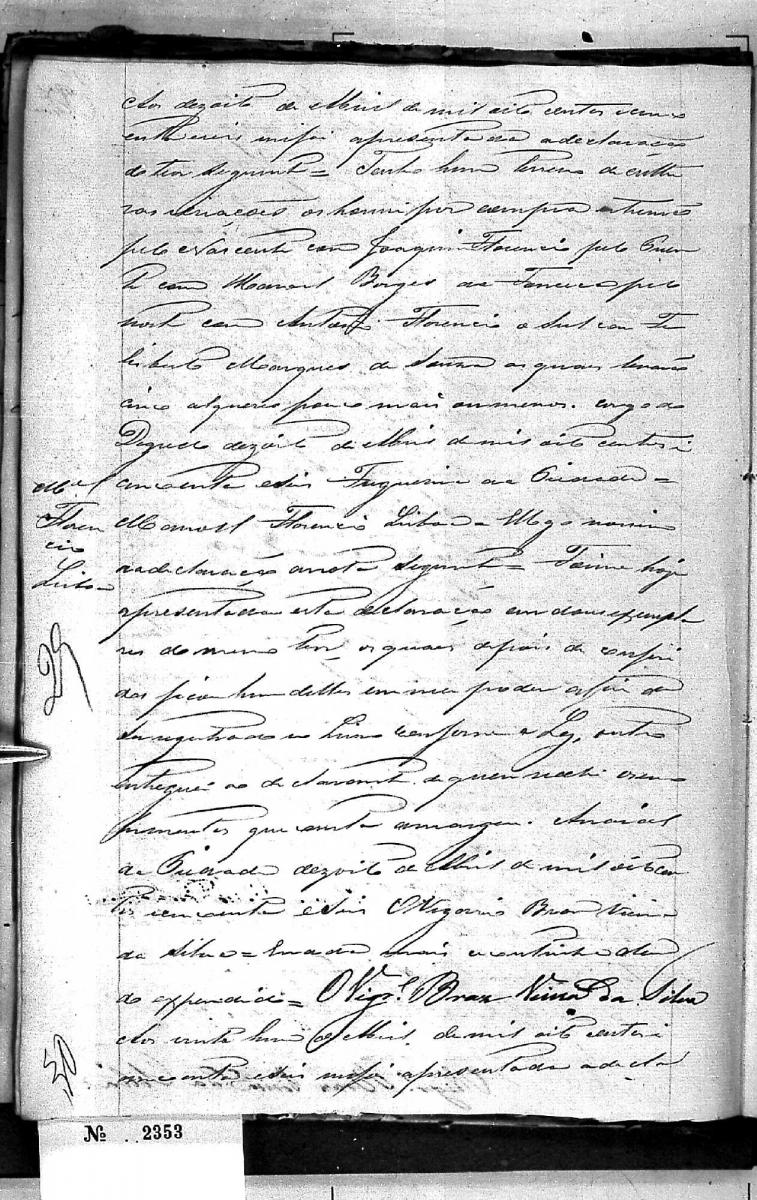 Aos dezoito de Abril de mil oito centos cinco
enta e seis me foi apresentada a declaração
do teor seguinte = Tenho hum terreno de cultu
ras e criações os houve por compra extrema
pelo Nascente com Joaquim Florencio pelo Poen
te com Manoel Borges da Fonceca pelo
norte com Antonio Florencio e Sul com Fe
lisberto Marques de Souza os quaes levarão
cinco alqueres pouco mais ou menos.
dezoito de Abril de mil oito centos e
cincoenta e seis Freguezia da Piedade =
Manoel Florencio Lisboa =
a declaração a nota seguinte = Foi me hoje
apresentada esta declaração em dous exempla
res do mesmo teor, os quaes depois de conferi
dos ficou hum delles em meu poder afim de
ser registrado no Livro conforme a Ley, outro
entreguei ao declarante de quem recebi os emo
lumentos que consta a margem. Arraial
da Piedade dezoito de Abril de mil oito cen
tos cincoenta e seis O Vigario Braz Vieira
da Silva = E nada mais continha
do expendido = O Vigr.º Braz Vieira da Silva
Aos vinte hum de Abril de mil oito centos e
cincoenta e seis me foi apresentada a decla
M.el
Floren
cio
Lisboa
29
30
Nº 2353